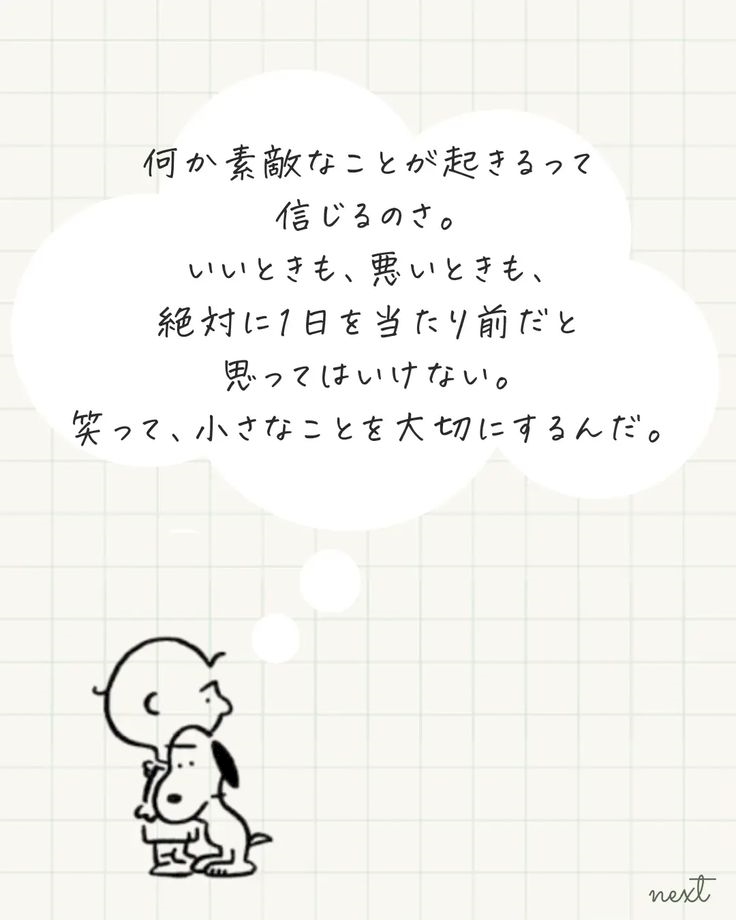 何か素敵なことが起きるって
信じるのさ。
いいときも、悪いときも、
絶対に1日を当たり前だと
思ってはいけない。
笑って、小さなことを大切にするんだ。
next